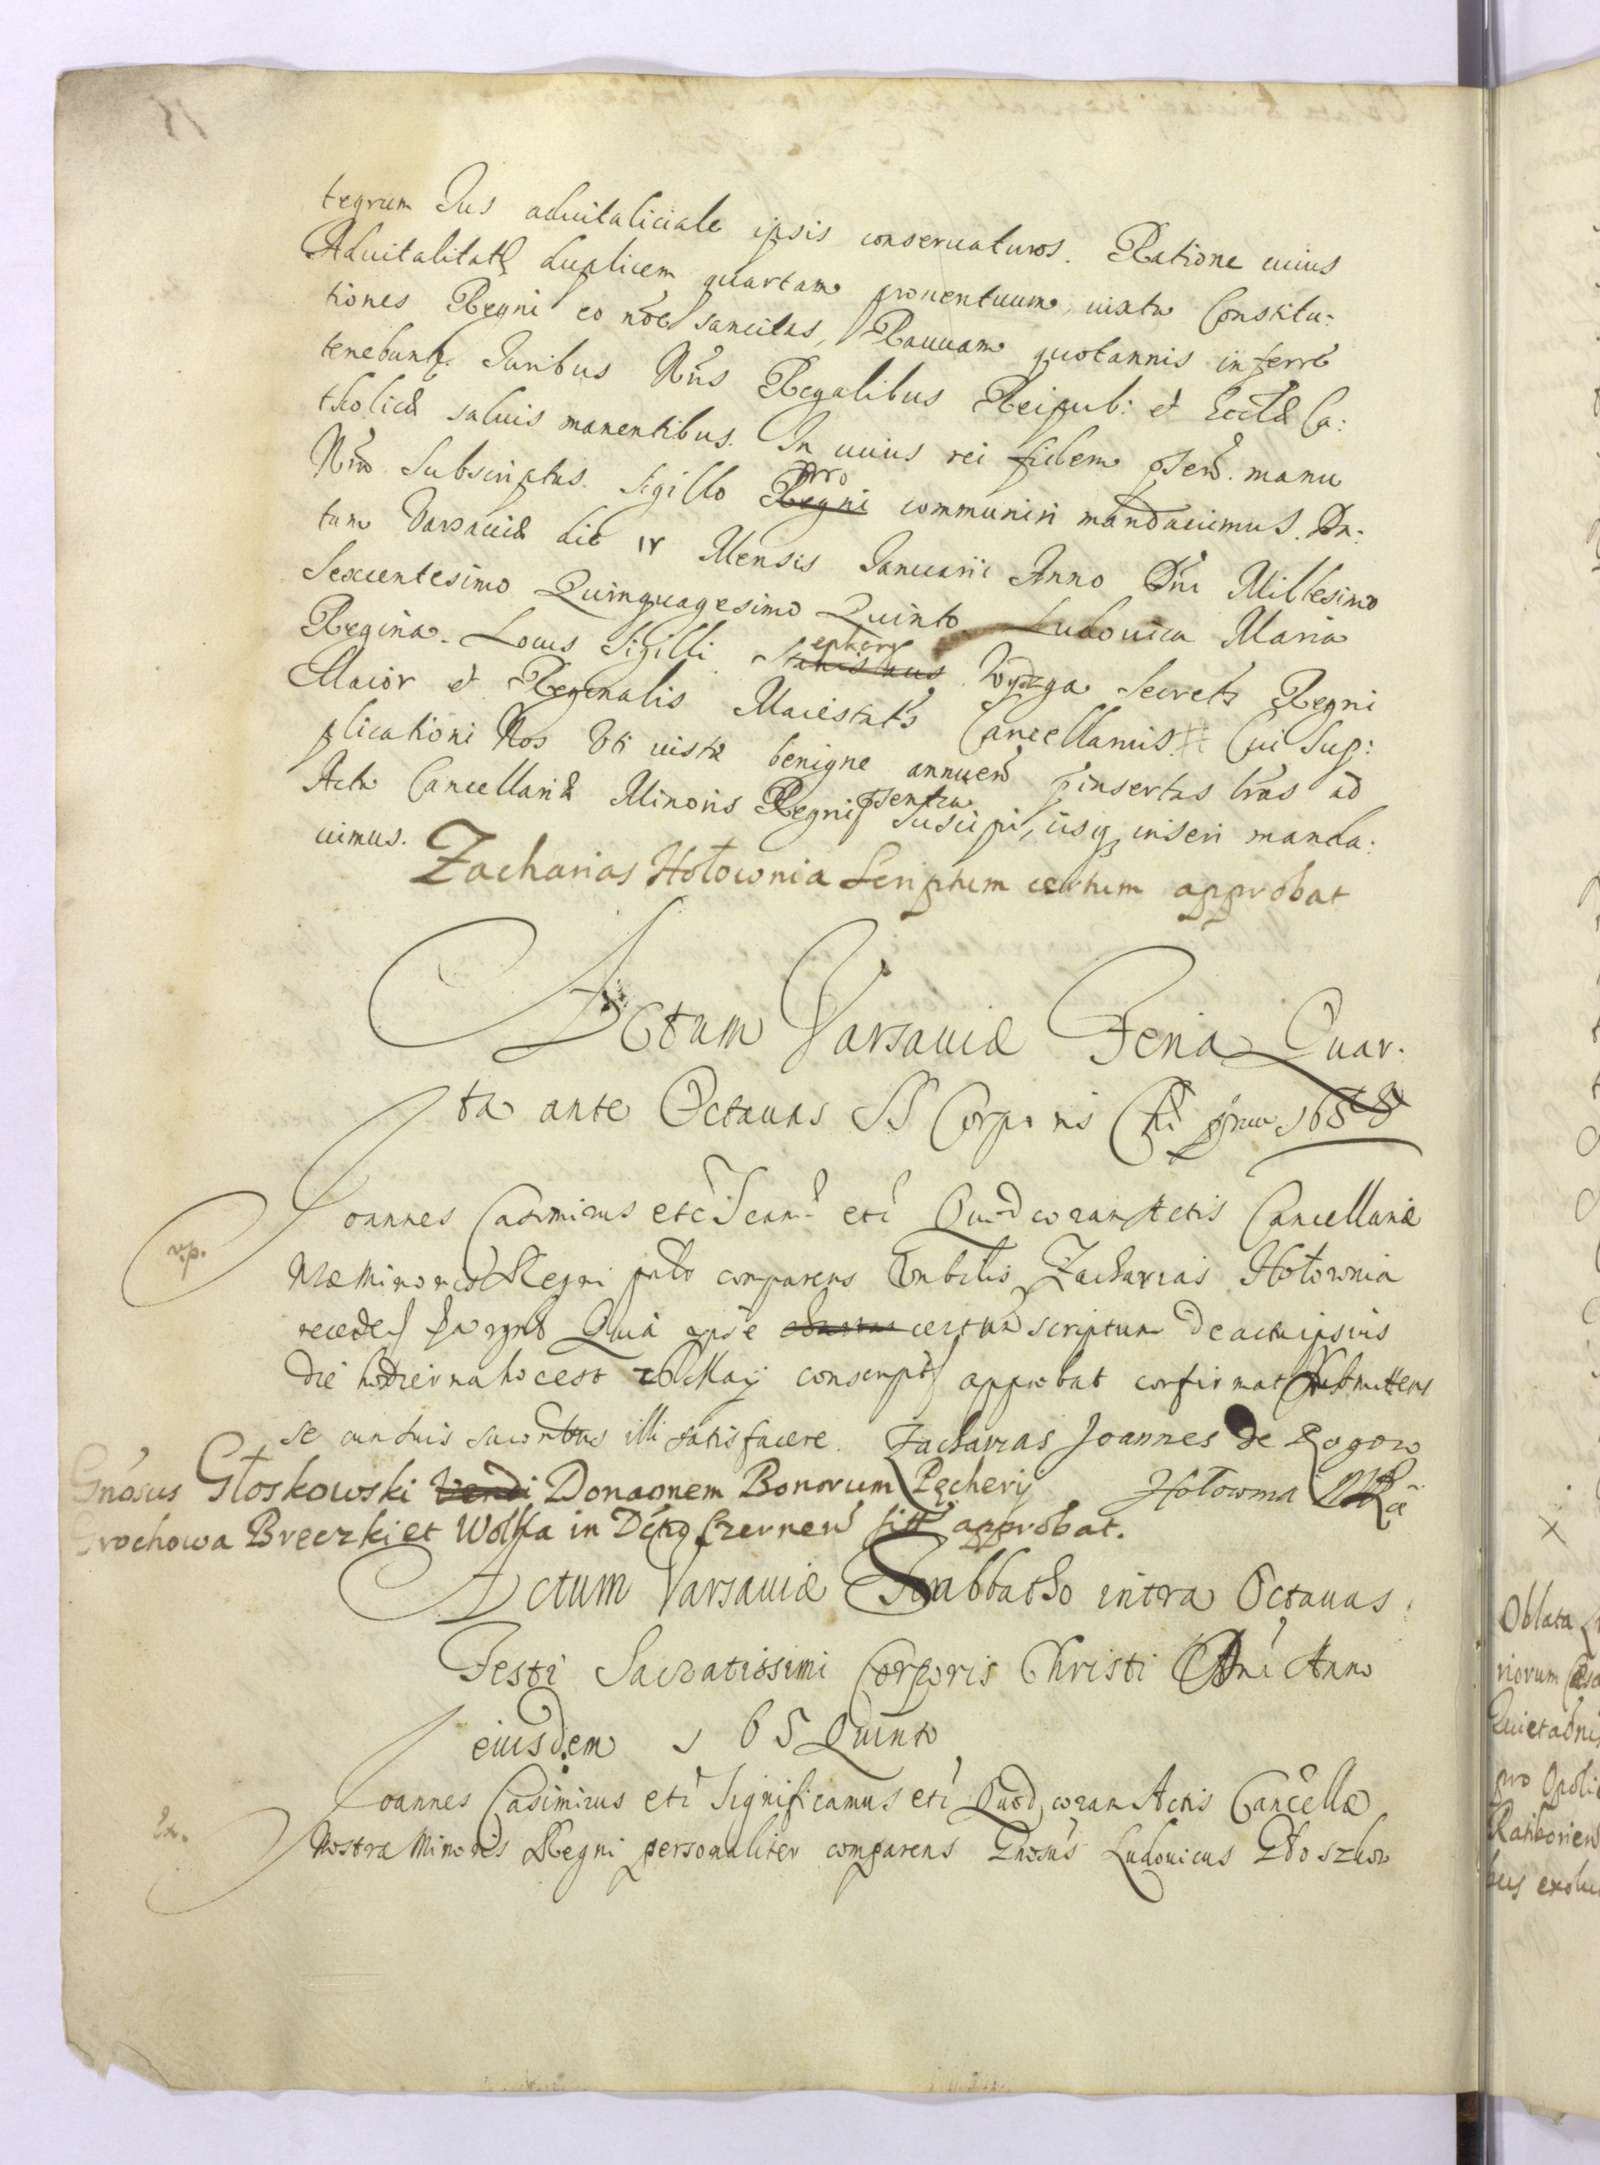 tegrum Jus aduitaliciale ipsis conseruaturos. Ratione cuius
Aduitalitatis duplicem quartam prouentuum iuxta Constitu:
tiones Regni eo nõe sancitas, Rauuam quotannis inferre
tenebunt. Juribus Nris Regalibus Reipub: et Eccłæ Ca:
tholicæ saluis manentibus. In cuius rei fidem pñtes manu
Nra Subscriptas Sigillo Regni nro communiri mandauimus. Da:
tum Varsauiæ die 12 Mensis Januarii Anno Dni Millesimo
Sexcentesimo Quinquagesimo Quinto Ludouica Maria
Regina. Locus Sigilli Stanislaus ephany Wydzga Secrets Regni
Maior et Reginalis Maiestatis Cancellarius. Cui Sup:
plicationi Nos Uti iustæ benigne annuen pinsertas lras ad
Acta Cancellariæ Minoris Regni psentia suscipi, iisq inseri manda:
uimus.
Zacharias Hołownia Scriptum certum approbat
Actum Varsauiæ Feria Quar.
ta ante Octauas SS Corporis Chri 1655
Joannes Casimirus etc etc Quod coram Actis Cancellariæ
Nræ Minoris Regni comparens Zacharias Hołownia
Quia ipse certum scriptum de actu ipsius
die hodierna hoc est 26 Maij conscript approbat confirmat submittens
se illi satisfacere. Zacharias Joannes de Rogow
Hołownia
Gnosus Głoskowski Vendi Donaonem Bonorum Pęchery
Grochowa Breczki et Wolka in Czernen approbat.
Actum Varsauiæ Sabbatho intra Octauas
Festi Sacratissimi Corporis Christi Dni Anno
eiusdem 165 Quinto
Joannes Casimirus etc Significamus etc Quod coram Actis Cancellæ
Nostræ Minoris Regni personaliter comparens Gnosus Ludouicus
Ex.
Oblata